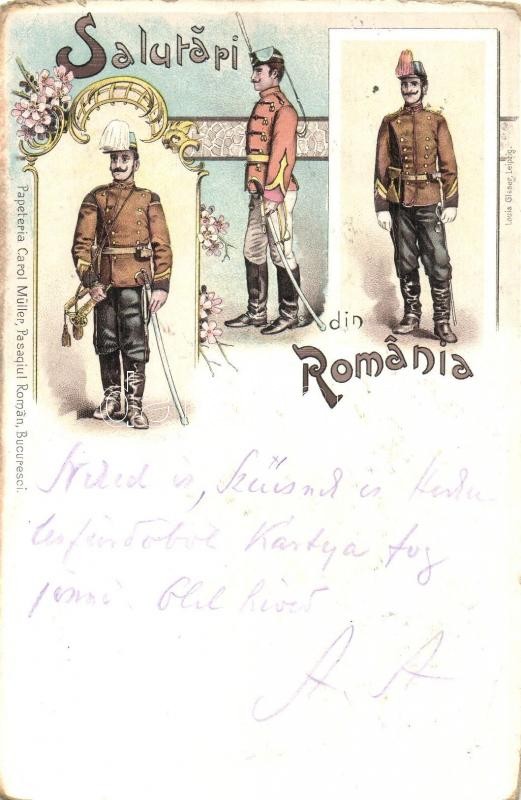 Salutări
din
România
Papeteria Carol Müller, Pasagiul Román, Bucuresci.
Louis Glaser, Leipzig.
Neked is, is Herku
lesfürdőből Kártya fog
jönni Ölel híved
A. A